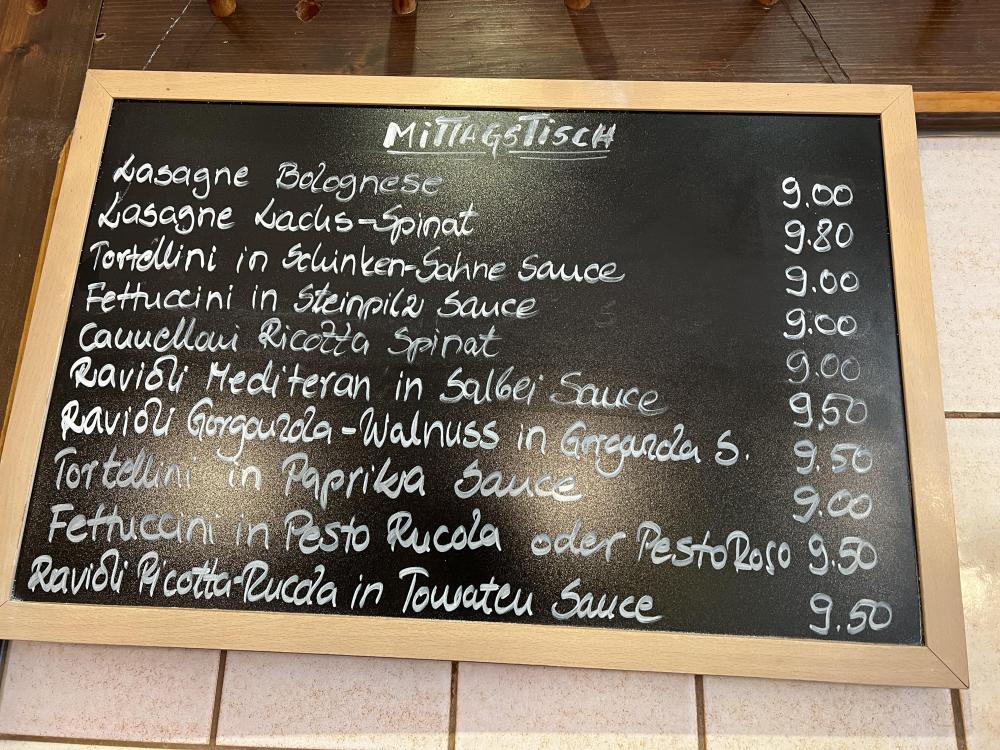 MITTAGSTISCH
Lasagne Bolognese 9.00
Lasagne Lachs-Spinat 9.80
Tortellini in Schinken-Sahne Sauce 9.00
Fettuccini in Steinpilz Sauce 9.00
Cannelloni Ricotta Spinat 9.00
Ravioli Mediteran in Salbei Sauce 9,50
Ravioli Gorgonzola-Walnuss in Gorgonzola S. 9.50
Tortellini in Paprika Sauce 9.00
Fettuccini in Pesto Rucola oder Pesto Roso 9.50
Ravioli Ricotta-Rucola in Tomaten Sauce 9.50